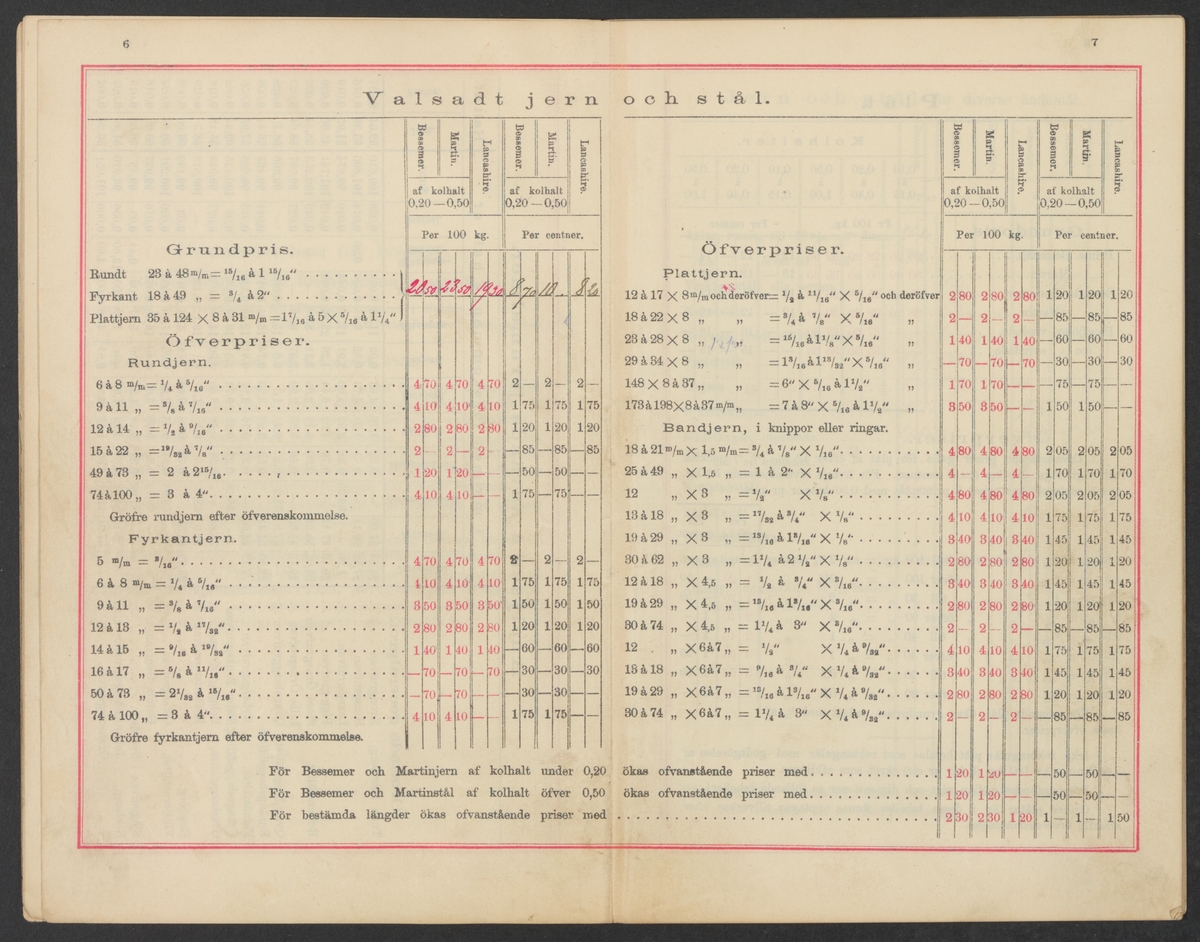 6
7
Valsadt jern och stål.
Bessemer. Martin. Lancashire. Bessemer. Martin. Lancashire.
af kolhalt 0,20—0,50 af kolhalt 0,20—0,50
Per 100 kg. Per centner.
Grundpris.
Rundt 23 à 48 m/m = 15/16 à 1 15/16"
Fyrkant 18 à 49 „ = 3/4 à 2" 20 50 23 50 19 20 8 70 10 . 8 20
Plattjern 35 à 124 × 8 à 31 m/m = 1 7/16 à 5 × 5/16 à 1 1/4"
Öfverpriser.
Rundjern.
6 à 8 m/m = 1/4 à 5/16" 4 70 4 70 4 70 2 — 2 — 2 —
9 à 11 „ = 3/8 à 7/16" 4 10 4 10 4 10 1 75 1 75 1 75
12 à 14 „ = 1/2 à 9/16" 2 80 2 80 2 80 1 20 1 20 1 20
15 à 22 „ = 19/32 à 7/8" 2 — 2 — 2 — — 85 — 85 — 85
49 à 73 „ = 2 à 2 15/16 1 20 1 20 — — — 50 — 50 — —
74 à 100 „ = 3 à 4" 4 10 4 10 — — 1 75 — 75 — —
Gröfre rundjern efter öfverenskommelse.
Fyrkantjern.
5 m/m = 3/16" 4 70 4 70 4 70 2 — 2 — 2 —
6 à 8 m/m = 1/4 à 5/16" 4 10 4 10 4 10 1 75 1 75 1 75
9 à 11 „ = 3/8 à 7/16" 3 50 3 50 3 50 1 50 1 50 1 50
12 à 13 „ = 1/2 à 17/32" 2 80 2 80 2 80 1 20 1 20 1 20
14 à 15 „ = 9/16 à 19/32" 1 40 1 40 1 40 — 60 — 60 — 60
16 à 17 „ = 5/8 à 11/16" — 70 — 70 — 70 — 30 — 30 — 30
50 à 73 „ = 2 1/32 à 15/16" — 70 — 70 — — — 30 — 30 — —
74 à 100 „ = 3 à 4" 4 10 4 10 — — 1 75 1 75 — —
Gröfre fyrkantjern efter öfverenskommelse.
Bessemer. Martin. Lancashire. Bessemer. Martin. Lancashire.
af kolhalt 0,20—0,50 af kolhalt 0,20—0,50
Per 100 kg. Per centner.
Öfverpriser.
Plattjern.
12 à 17 × 8 m/m och deröfver = 1/2 à 11/16" × 5/16" och deröfver 2 80 2 80 2 80 1 20 1 20 1 20
18 à 22 × 8 „ „ = 3/4 à 7/8" × 5/16" „ 2 — 2 — 2 — — 85 — 85 — 85
23 à 28 × 8 „ „ = 15/16 à 1 1/8" × 5/16" „ 1 40 1 40 1 40 — 60 — 60 — 60
29 à 34 × 8 „ „ = 1 3/16 à 1 13/32" × 5/16" „ — 70 — 70 — 70 — 30 — 30 — 30
148 × 8 à 37 „ „ = 6" × 5/16 à 1 1/2" „ 1 70 1 70 — — — 75 — 75 — —
173 à 198 × 8 à 37 m/m „ = 7 à 8" × 5/16 à 1 1/2" „ 3 50 3 50 — — 1 50 1 50 — —
Bandjern, i knippor eller ringar.
18 à 21 m/m × 1,5 m/m = 3/4 à 7/8" × 1/16" 4 80 4 80 4 80 2 05 2 05 2 05
25 à 49 „ × 1,5 „ = 1 à 2" × 1/16" 4 — 4 — 4 — 1 70 1 70 1 70
12 „ × 3 „ = 1/2" × 1/8" 4 80 4 80 4 80 2 05 2 05 2 05
13 à 18 „ × 3 „ = 17/32 à 3/4" × 1/8" 4 10 4 10 4 10 1 75 1 75 1 75
19 à 29 „ × 3 „ = 13/16 à 1 3/16" × 1/8" 3 40 3 40 3 40 1 45 1 45 1 45
30 à 62 „ × 3 „ = 1 1/4 à 2 1/2" × 1/8" 2 80 2 80 2 80 1 20 1 20 1 20
12 à 18 „ × 4,5 „ = 1/2 à 3/4" × 3/16" 3 40 3 40 3 40 1 45 1 45 1 45
19 à 29 „ × 4,5 „ = 13/16 à 1 3/16" × 3/16" 2 80 2 80 2 80 1 20 1 20 1 20
30 à 74 „ × 4,5 „ = 1 1/4 à 3" × 3/16" 2 — 2 — 2 — — 85 — 85 — 85
12 „ × 6 à 7 „ = 1/2" × 1/4 à 9/32" 4 10 4 10 4 10 1 75 1 75 1 75
13 à 18 „ × 6 à 7 „ = 9/16 à 3/4" × 1/4 à 9/32" 3 40 3 40 3 40 1 45 1 45 1 45
19 à 29 „ × 6 à 7 „ = 13/16 à 1 3/16" × 1/4 à 9/32" 2 80 2 80 2 80 1 20 1 20 1 20
30 à 74 „ × 6 à 7 „ = 1 1/4 à 3" × 1/4 à 9/32" 2 — 2 — 2 — — 85 — 85 — 85
För Bessemer och Martinjern af kolhalt under 0,20 ökas ofvanstående priser med 1 20 1 20 — — — 50 — 50 — —
För Bessemer och Martinstål af kolhalt öfver 0,50 ökas ofvanstående priser med 1 20 1 20 — — — 50 — 50 — —
För bestämda längder ökas ofvanstående priser med 2 30 2 30 1 20 1 — 1 — 1 50